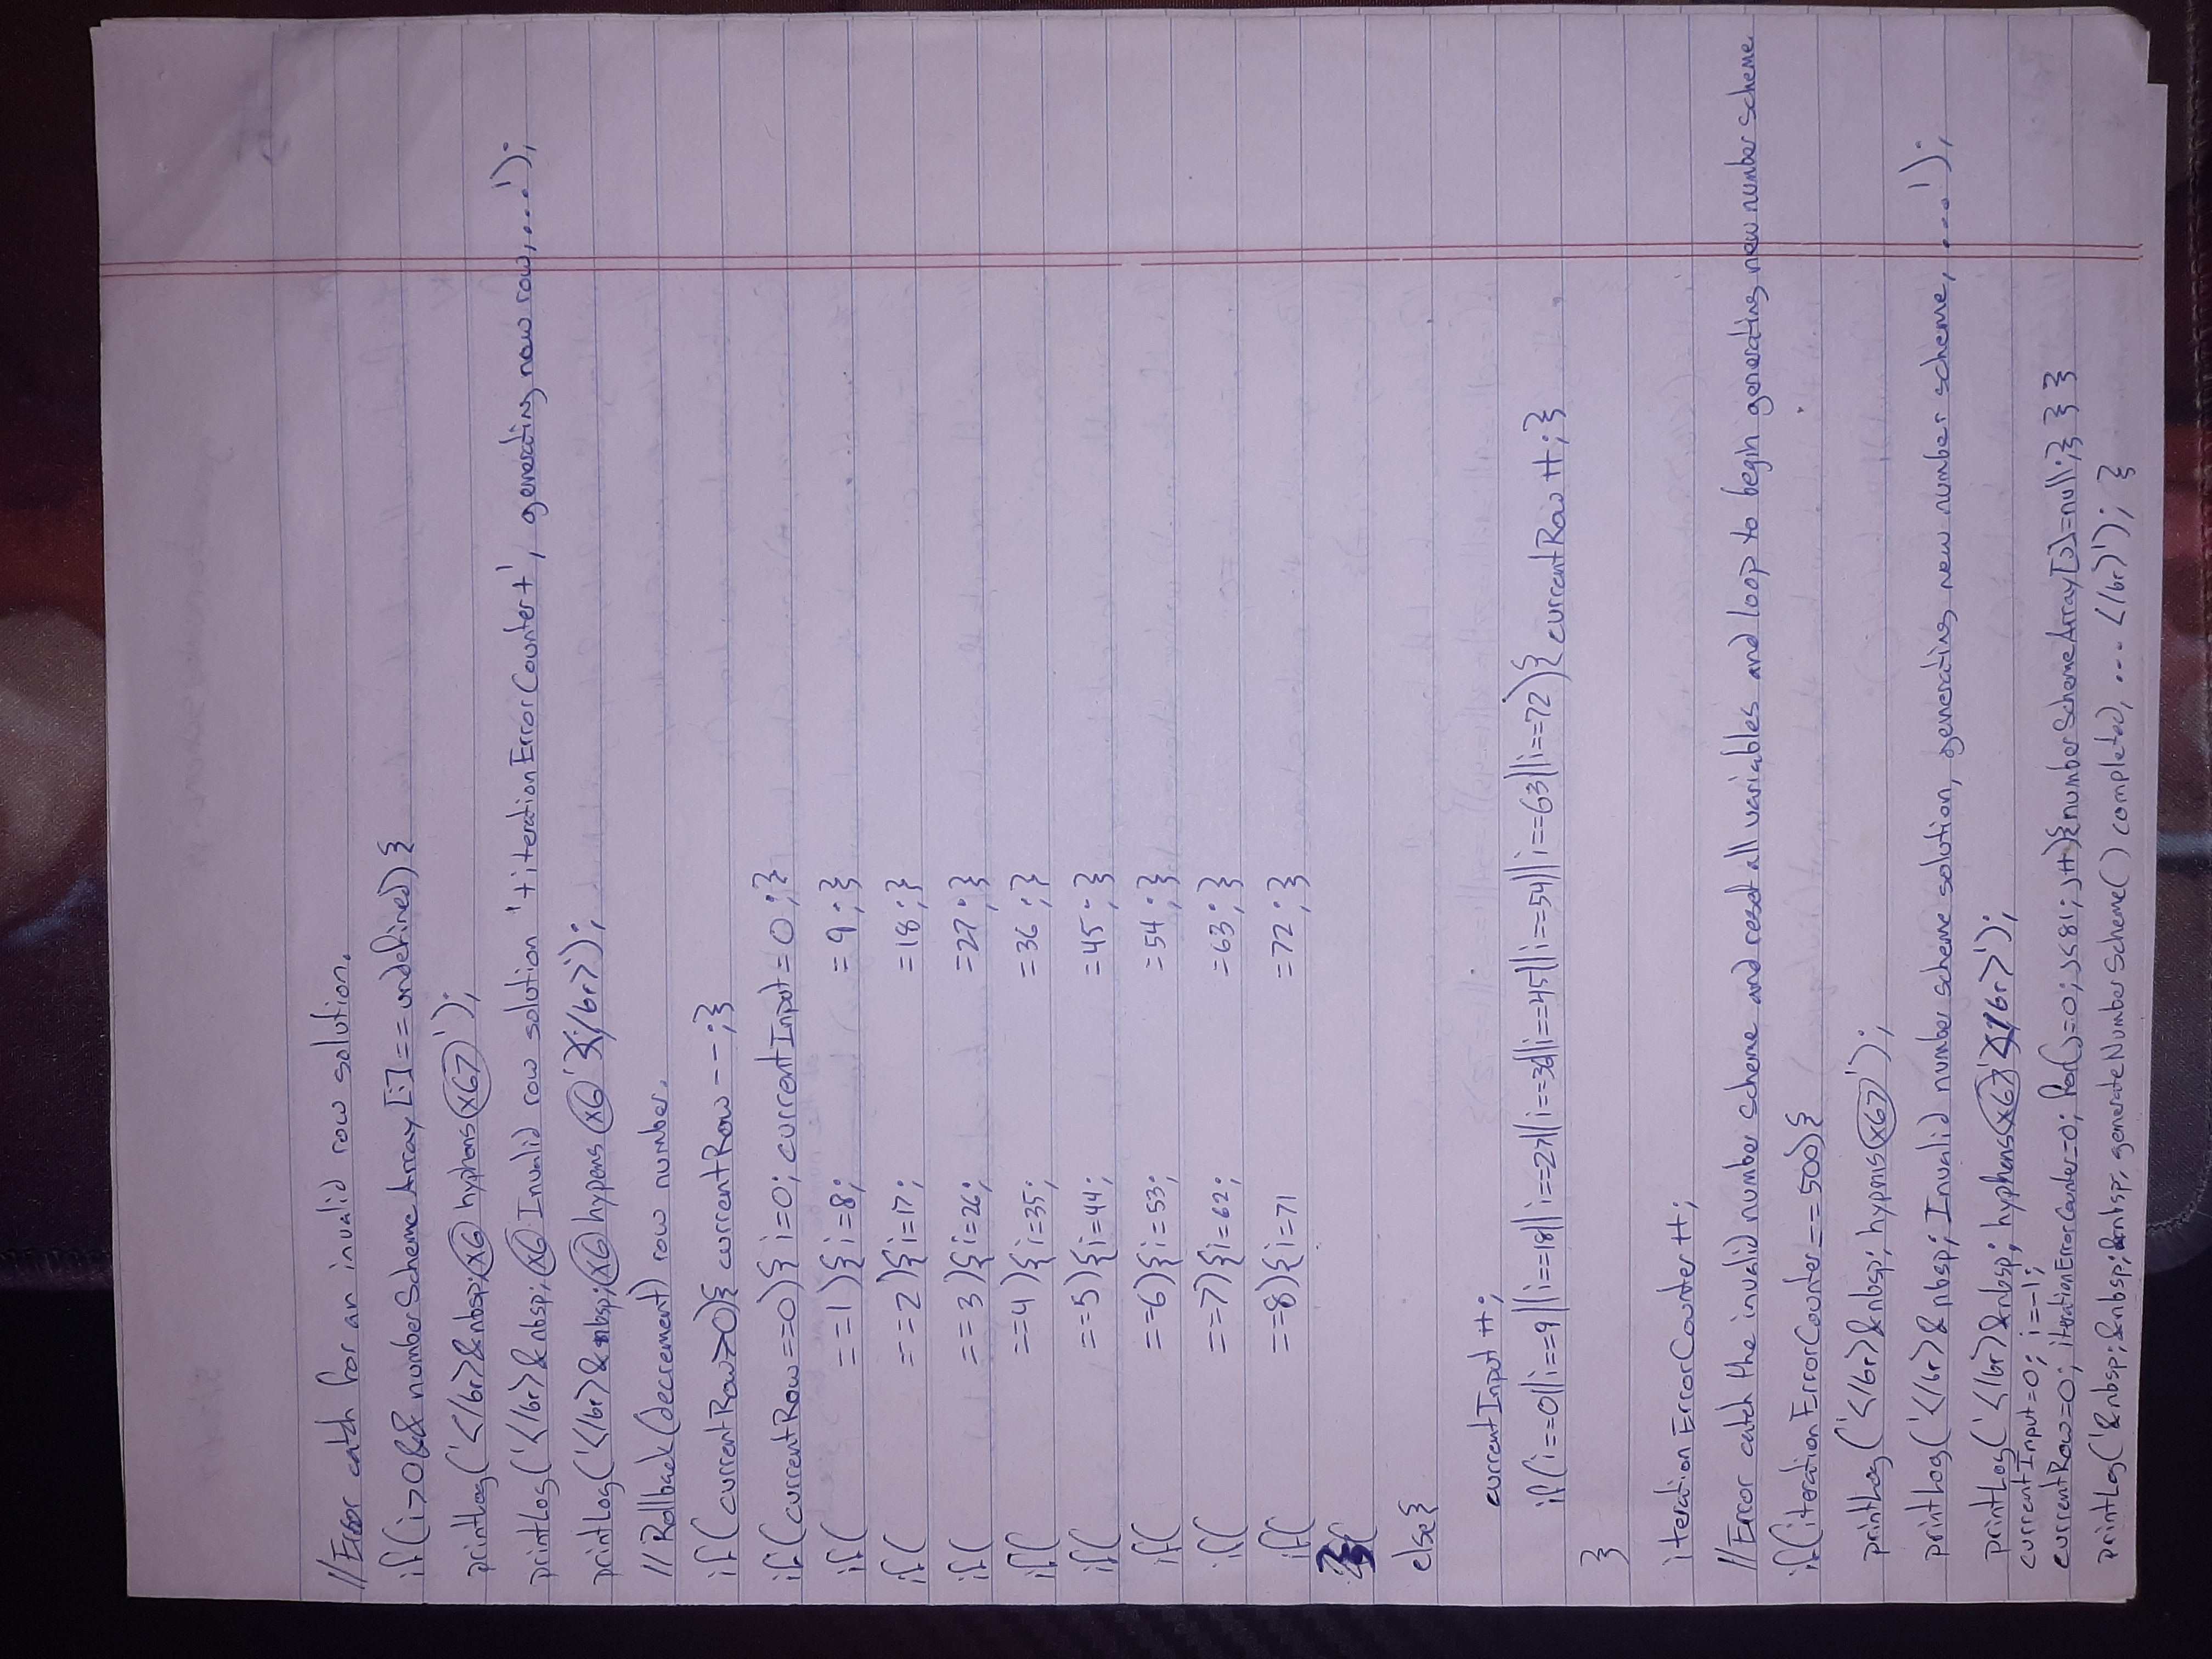 //Error catch for an invalid row solution.
if(i>0&& numberSchemeArray[i]==undefined){
printLog('</br>&nbsp;x6 hyphens x67');
printLog('</br>&nbsp;x6 Invalid row solution '+iterationErrorCounter+', generating new row,...');
printLog('</br>&nbsp;x6 hypens x6'</br>');
// Rollback(decrement) row number.
if(currentRow>0){ currentRow--;}
if(currentRow==0){ i=0; currentInput=0;}
if( ==1){i=8; =9;}
if( ==2){i=17; =18;}
if( ==3){i=26; =27;}
if( ==4){i=35; =36;}
if( ==5){i=44; =45;}
if( ==6){i=53; =54;}
if( ==7){i=62; =63;}
if( ==8){i=71 =72;}
}
else{
currentInput++;
if(i==0||i==9||i==18||i==27||i==36||i==45||i==54||i==63||i==72){currentRow++;}
}
iterationErrorCounter++;
//Error catch the invalid number scheme and reset all variables and loop to begin generating new number scheme
if(iterationErrorCounter==500){
printLog('</br>&nbsp; hypens x67');
printLog('</br>&nbsp; Invalid number scheme solution, generating new number scheme, ....');
printLog('</br>&nbsp; hyphens x67'</br>');
currentInput=0; i=-1;
currentRow=0; iterationErrorCounter=0; for(j=0; j<81; j++){numberSchemeArray[j]=null;} } }
printLog('&nbsp;&nbsp;&nbsp; generateNumberScheme() completed, ... </br>'); }